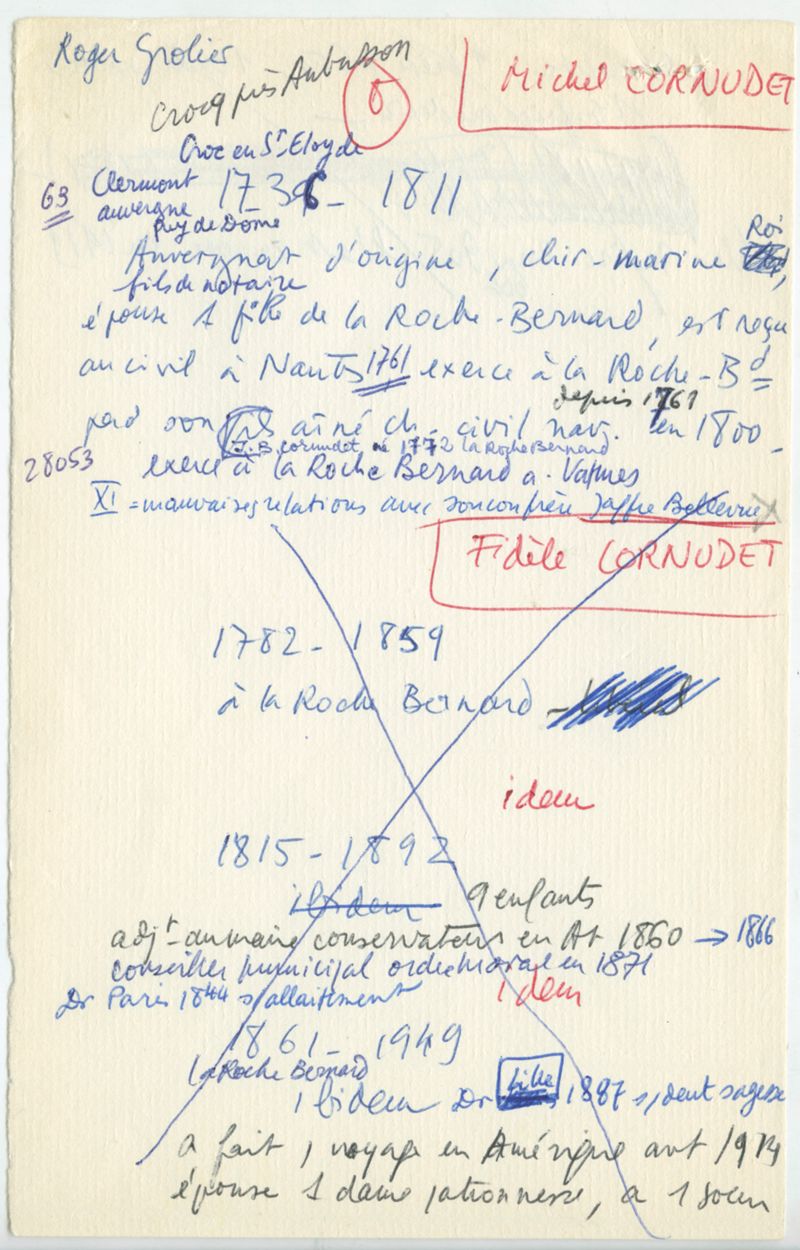 Roger Grolier
Crocq près Aubusson
8
Michel CORNUDET
Croc en St-Eloy de
63 Clermont 1736 - 1811
auvergne
puy de Dôme
Auvergnat d'origine, chir-marine Roi,
fils de notaire
épouse 1 fille de la Roche-Bernard, est reçu
au civil à Nantes 1761 exerce à la Roche-Bd
depuis 1761
perd son fils aîné ch. civil nav. en 1800 -
J.B. cornudet né 1772 la Roche Bernard
28053 exerce à la Roche Bernard a. Vannes
XI = mauvaises relations avec son confrère Jaffre Bellevue X
Fidèle CORNUDET
1782 - 1859
à la Roche Bernard -
idem
1815 - 1892
ibidem 9 enfants
adjt-au maire conservateurs en At 1860 → 1866
conseiller municipal en 1871
Dr Paris 1844 s/allaitement
idem
1861 - 1949
la Roche Bernard
ibidem Dr Lille 1887 s/dent sagesse
a fait 1 voyage en Amérique avt 1914
épouse 1 dame, a 1 soeur